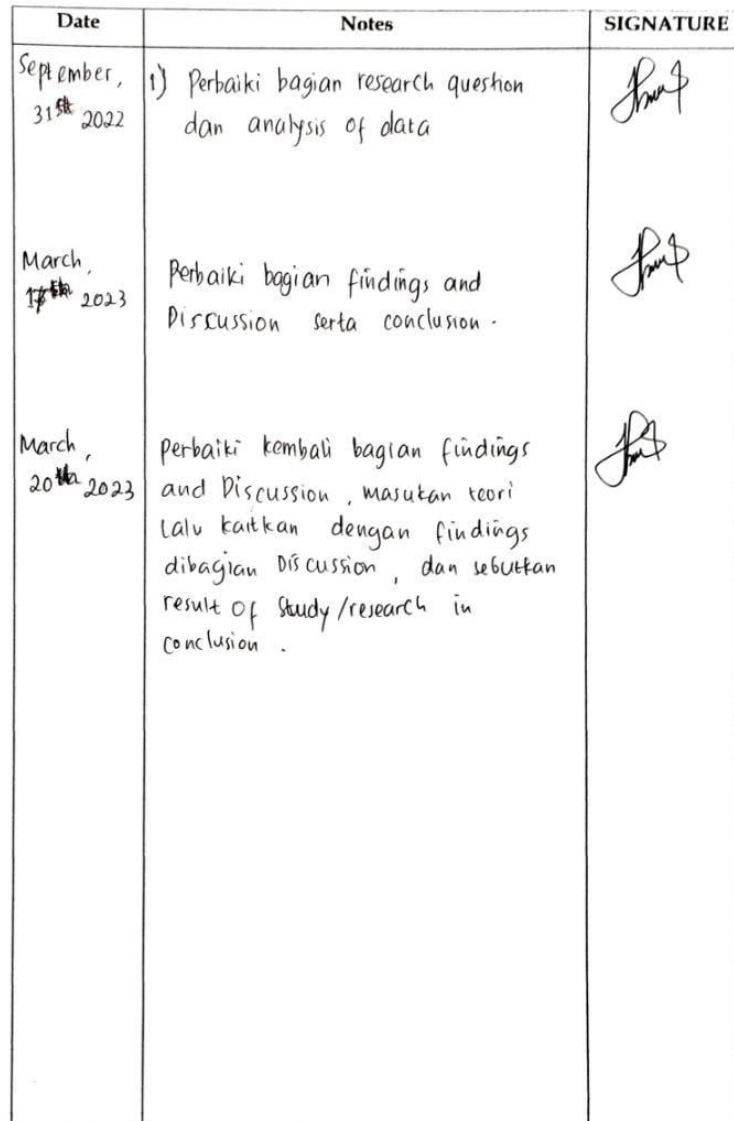 Date Notes SIGNATURE
September, 1) Perbaiki bagian research question
31st 2022 dan analysis of data
March, Perbaiki bagian findings and
2023 Discussion serta conclusion.
March, Perbaiki kembali bagian findings
20th 2023 and Discussion, masukan teori
lalu kaitkan dengan findings
dibagian Discussion, dan sebutkan
result of study/research in
conclusion.